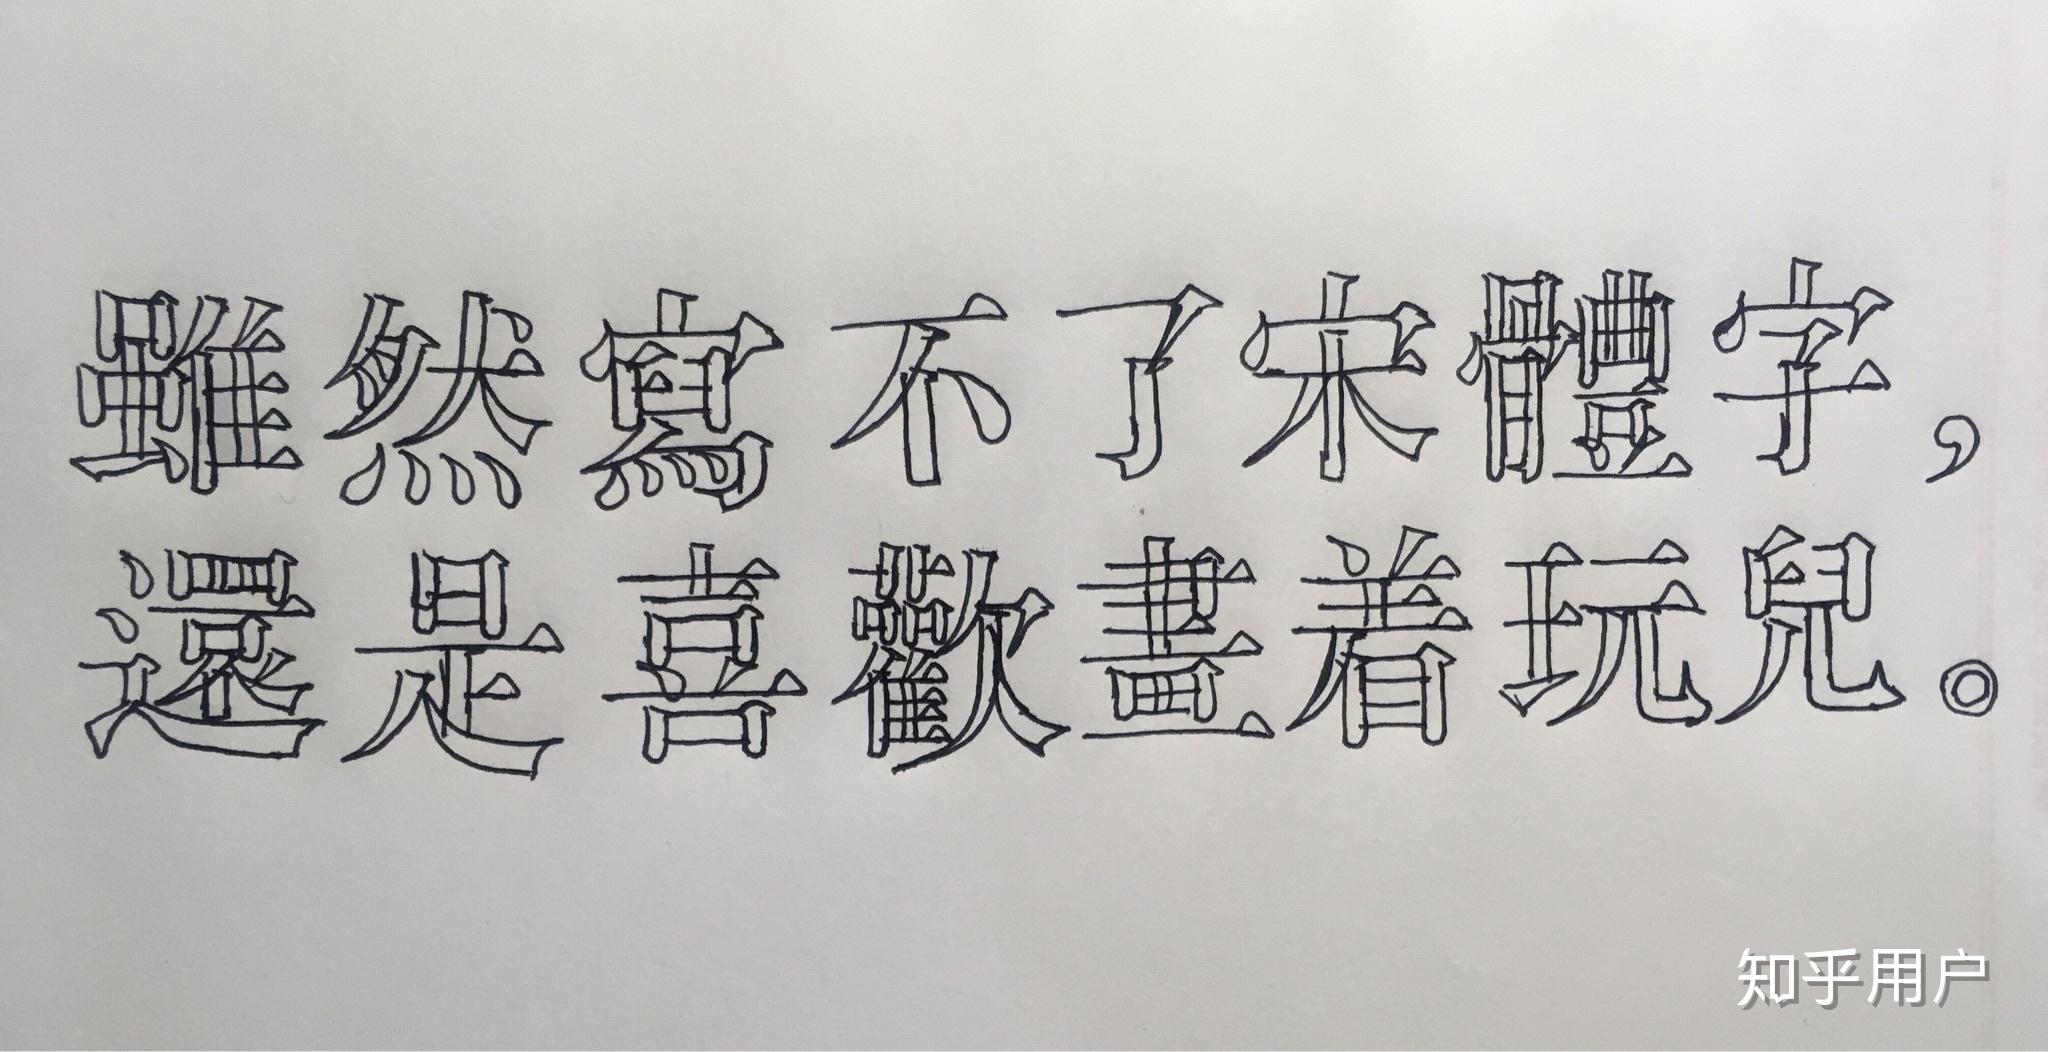 雖然寫不了宋體字，
還是喜歡畫着玩兒。
知乎用户